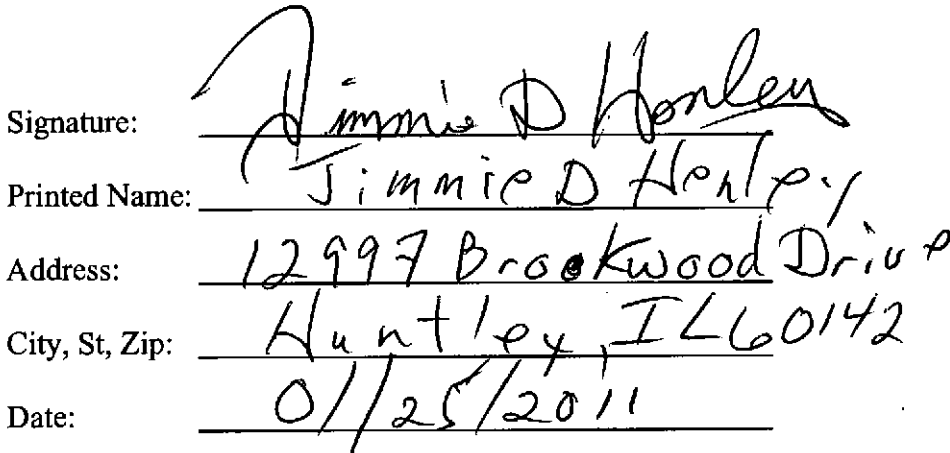 Signature: Jimmie D Henley
Printed Name: Jimmie D Henley
Address: 12997 Brookwood Drive
City, St, Zip: Huntley, IL 60142
Date: 01/25/2011